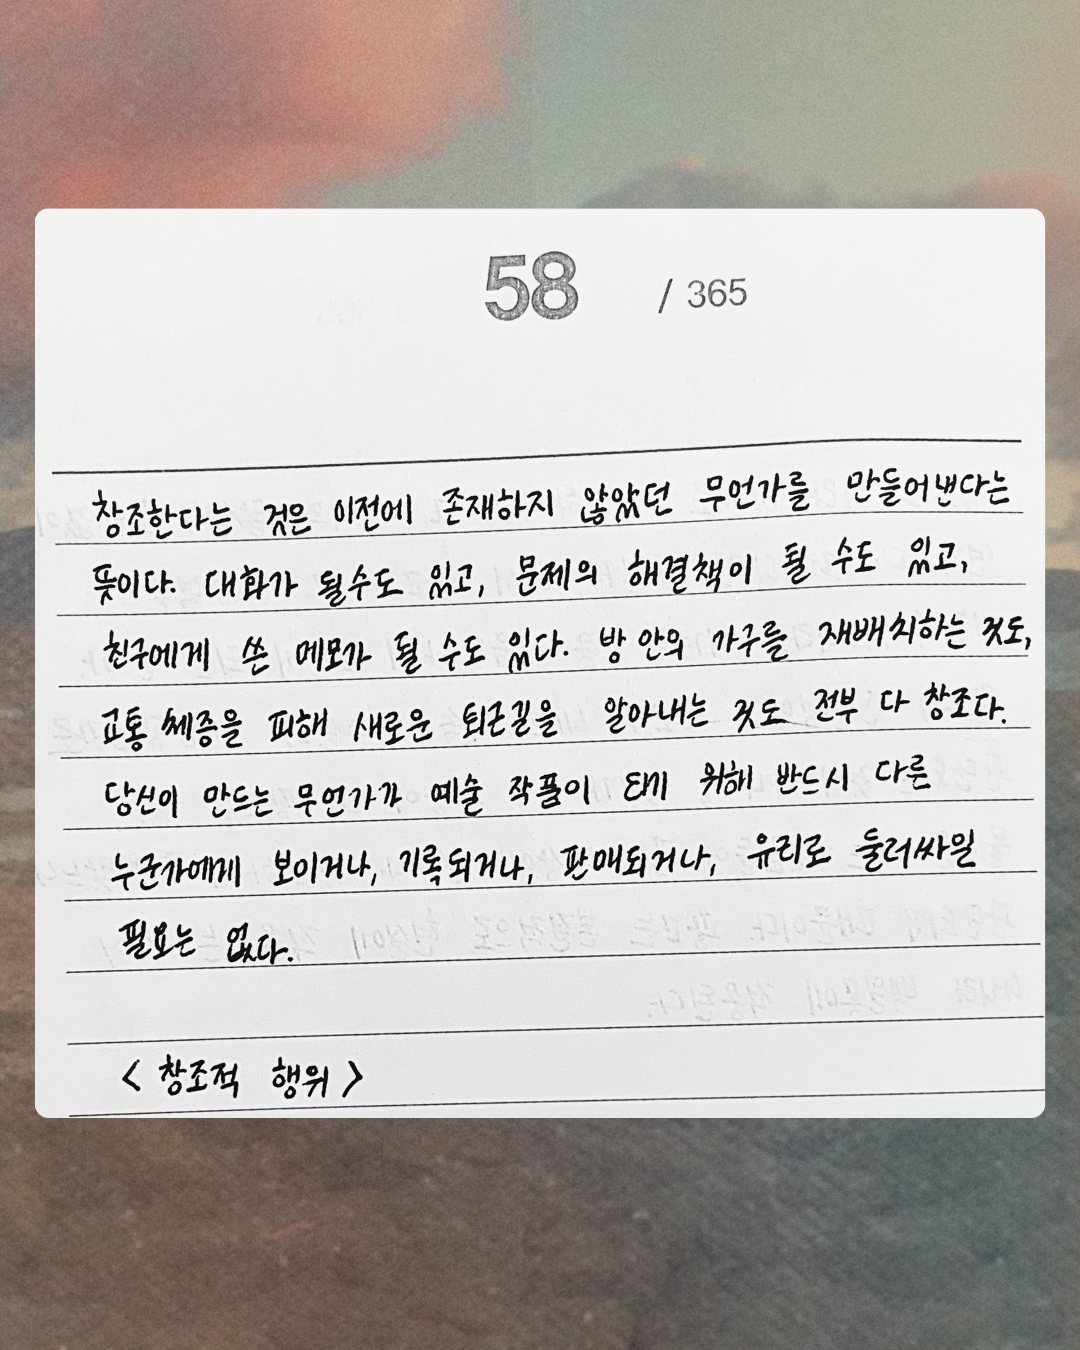 58 / 365
창조한다는 것은 이전에 존재하지 않았던 무언가를 만들어낸다는
뜻이다. 대화가 될수도 있고, 문제의 해결책이 될 수도 있고,
친구에게 쓴 메모가 될 수도 있다. 방 안의 가구를 재배치하는 것도,
교통 체증을 피해 새로운 퇴근길을 알아내는 것도 전부 다 창조다.
당신이 만드는 무언가가 예술 작품이 되기 위해 반드시 다른
누군가에게 보이거나, 기록되거나, 판매되거나, 유리로 둘러싸일
필요는 없다.
< 창조적 행위 >